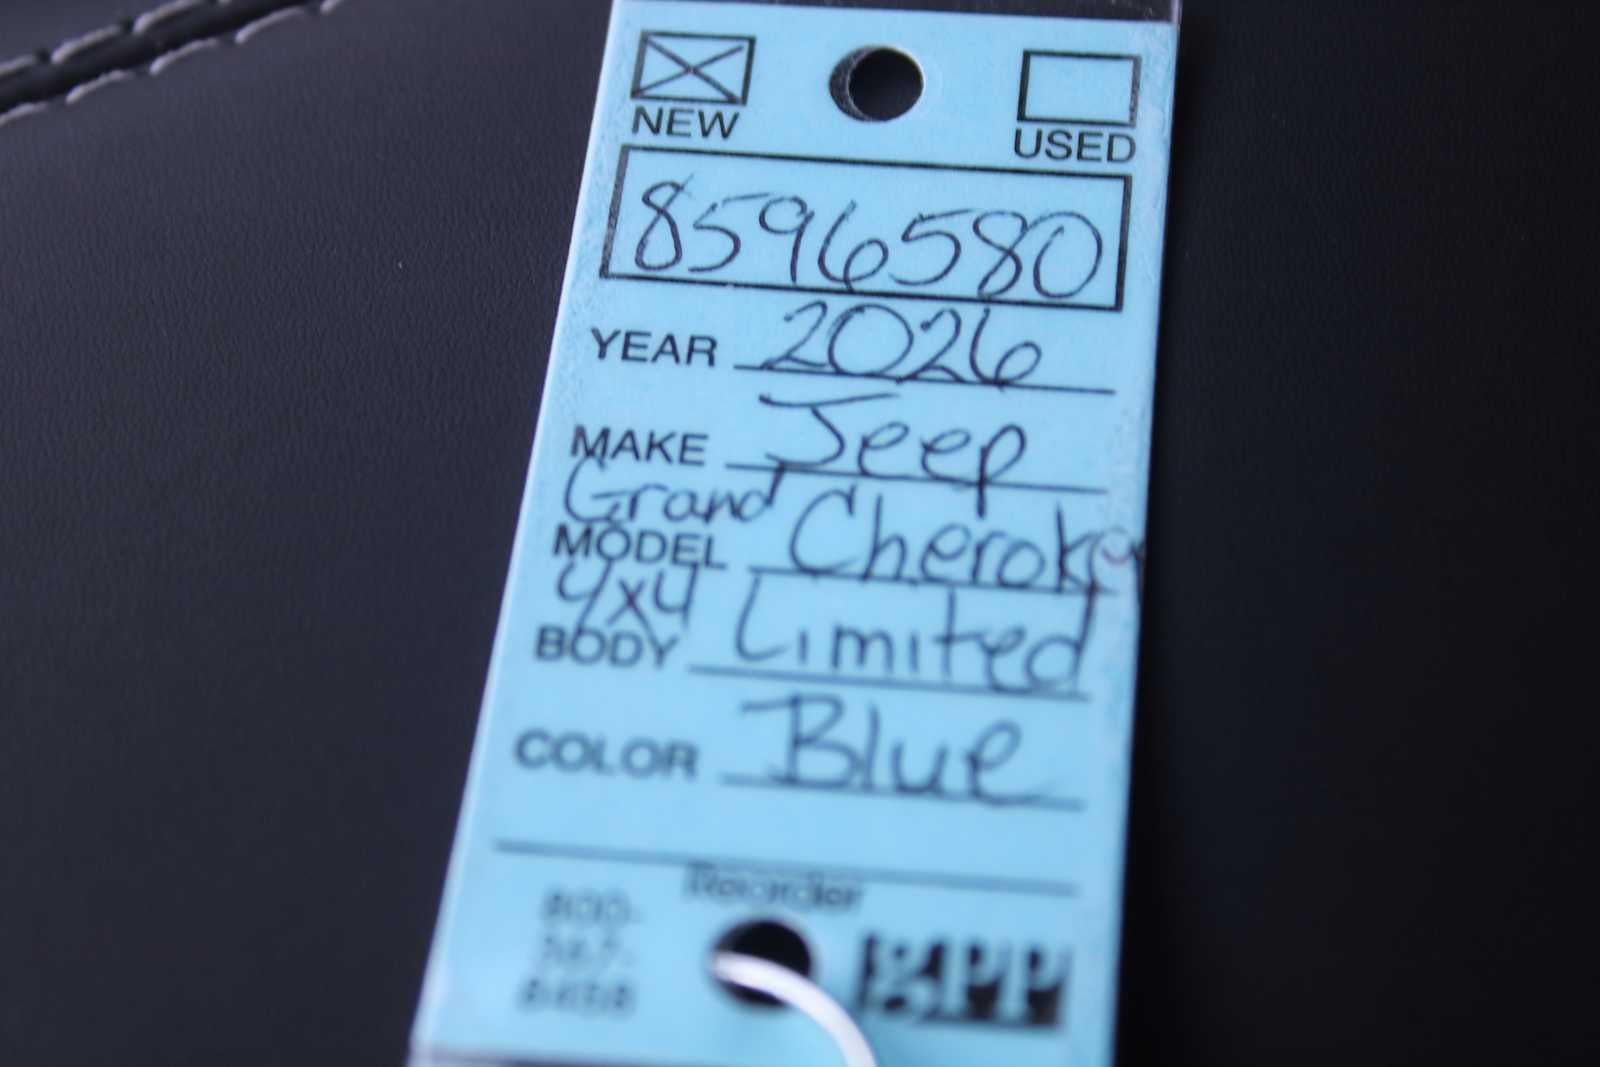 NEW USED
8596580
YEAR 2026
MAKE Jeep
Grand
MODEL Cherokee
4x4
BODY Limited
COLOR Blue
Reorder
800-